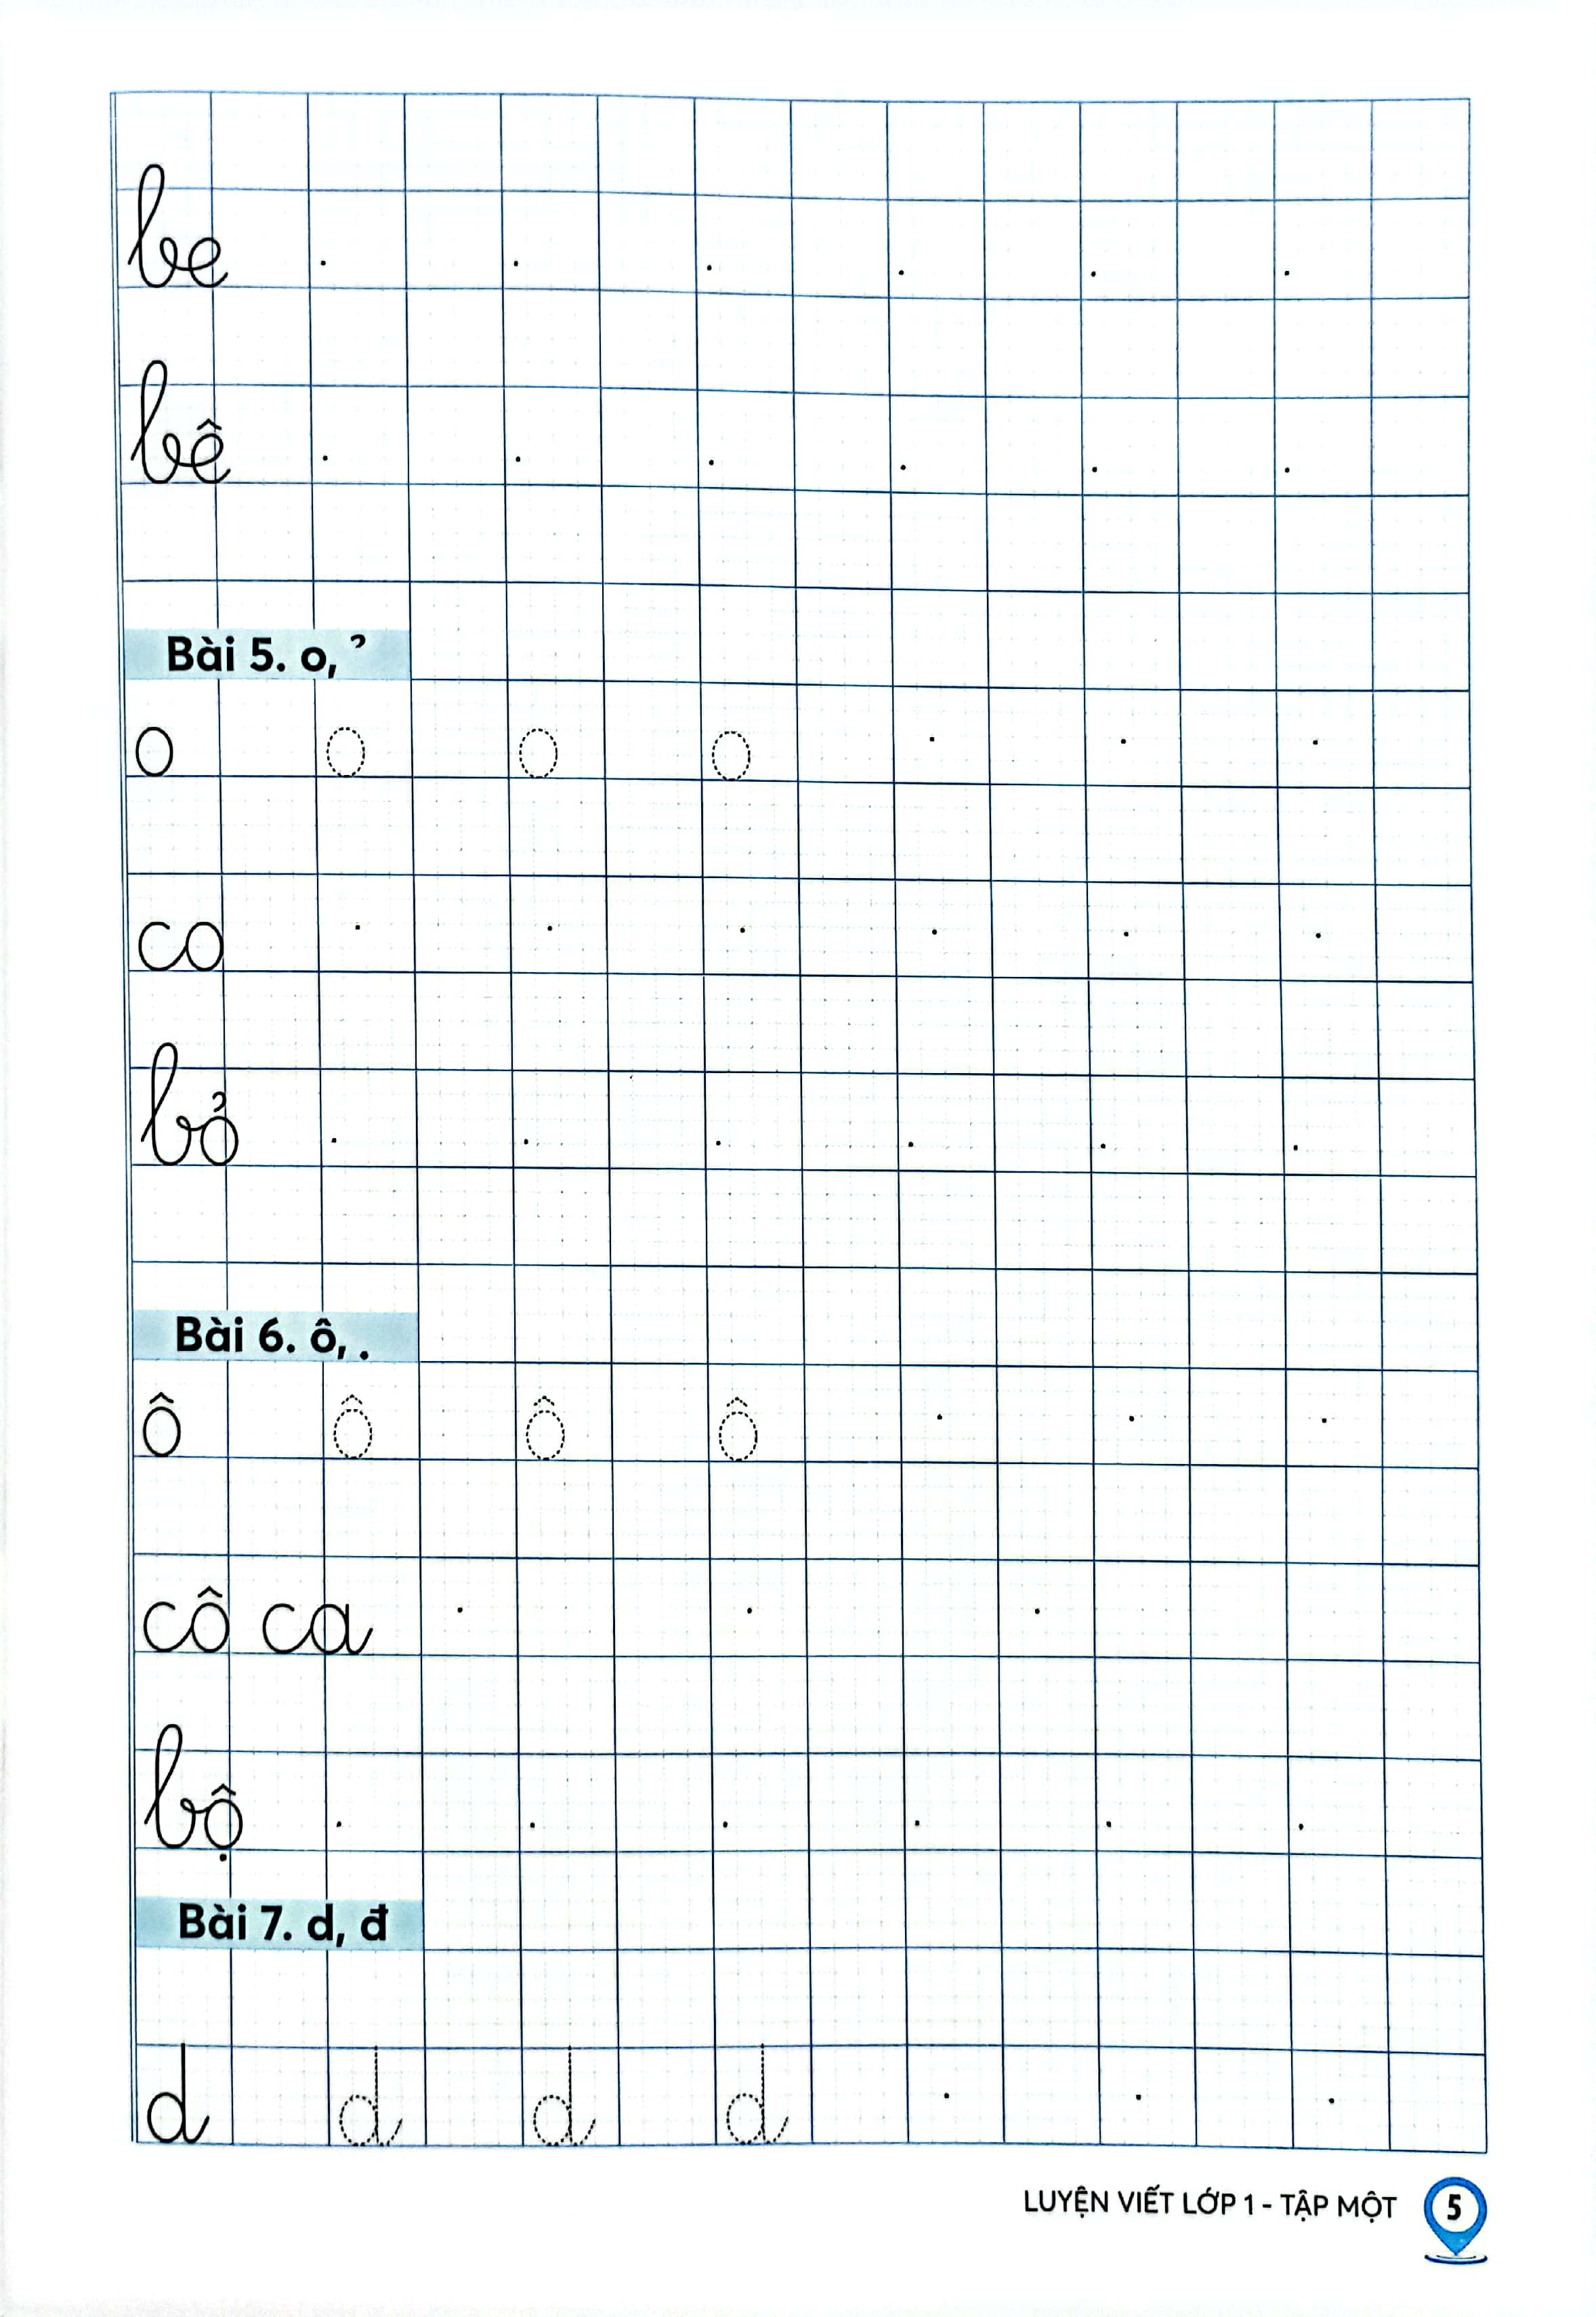 be
bê
Bài 5. o, ̉
o o o o
co
bỏ
Bài 6. ô, .
ô ô ô ô
cô ca
bộ
Bài 7. d, đ
d d d d
LUYỆN VIẾT LỚP 1 - TẬP MỘT 5